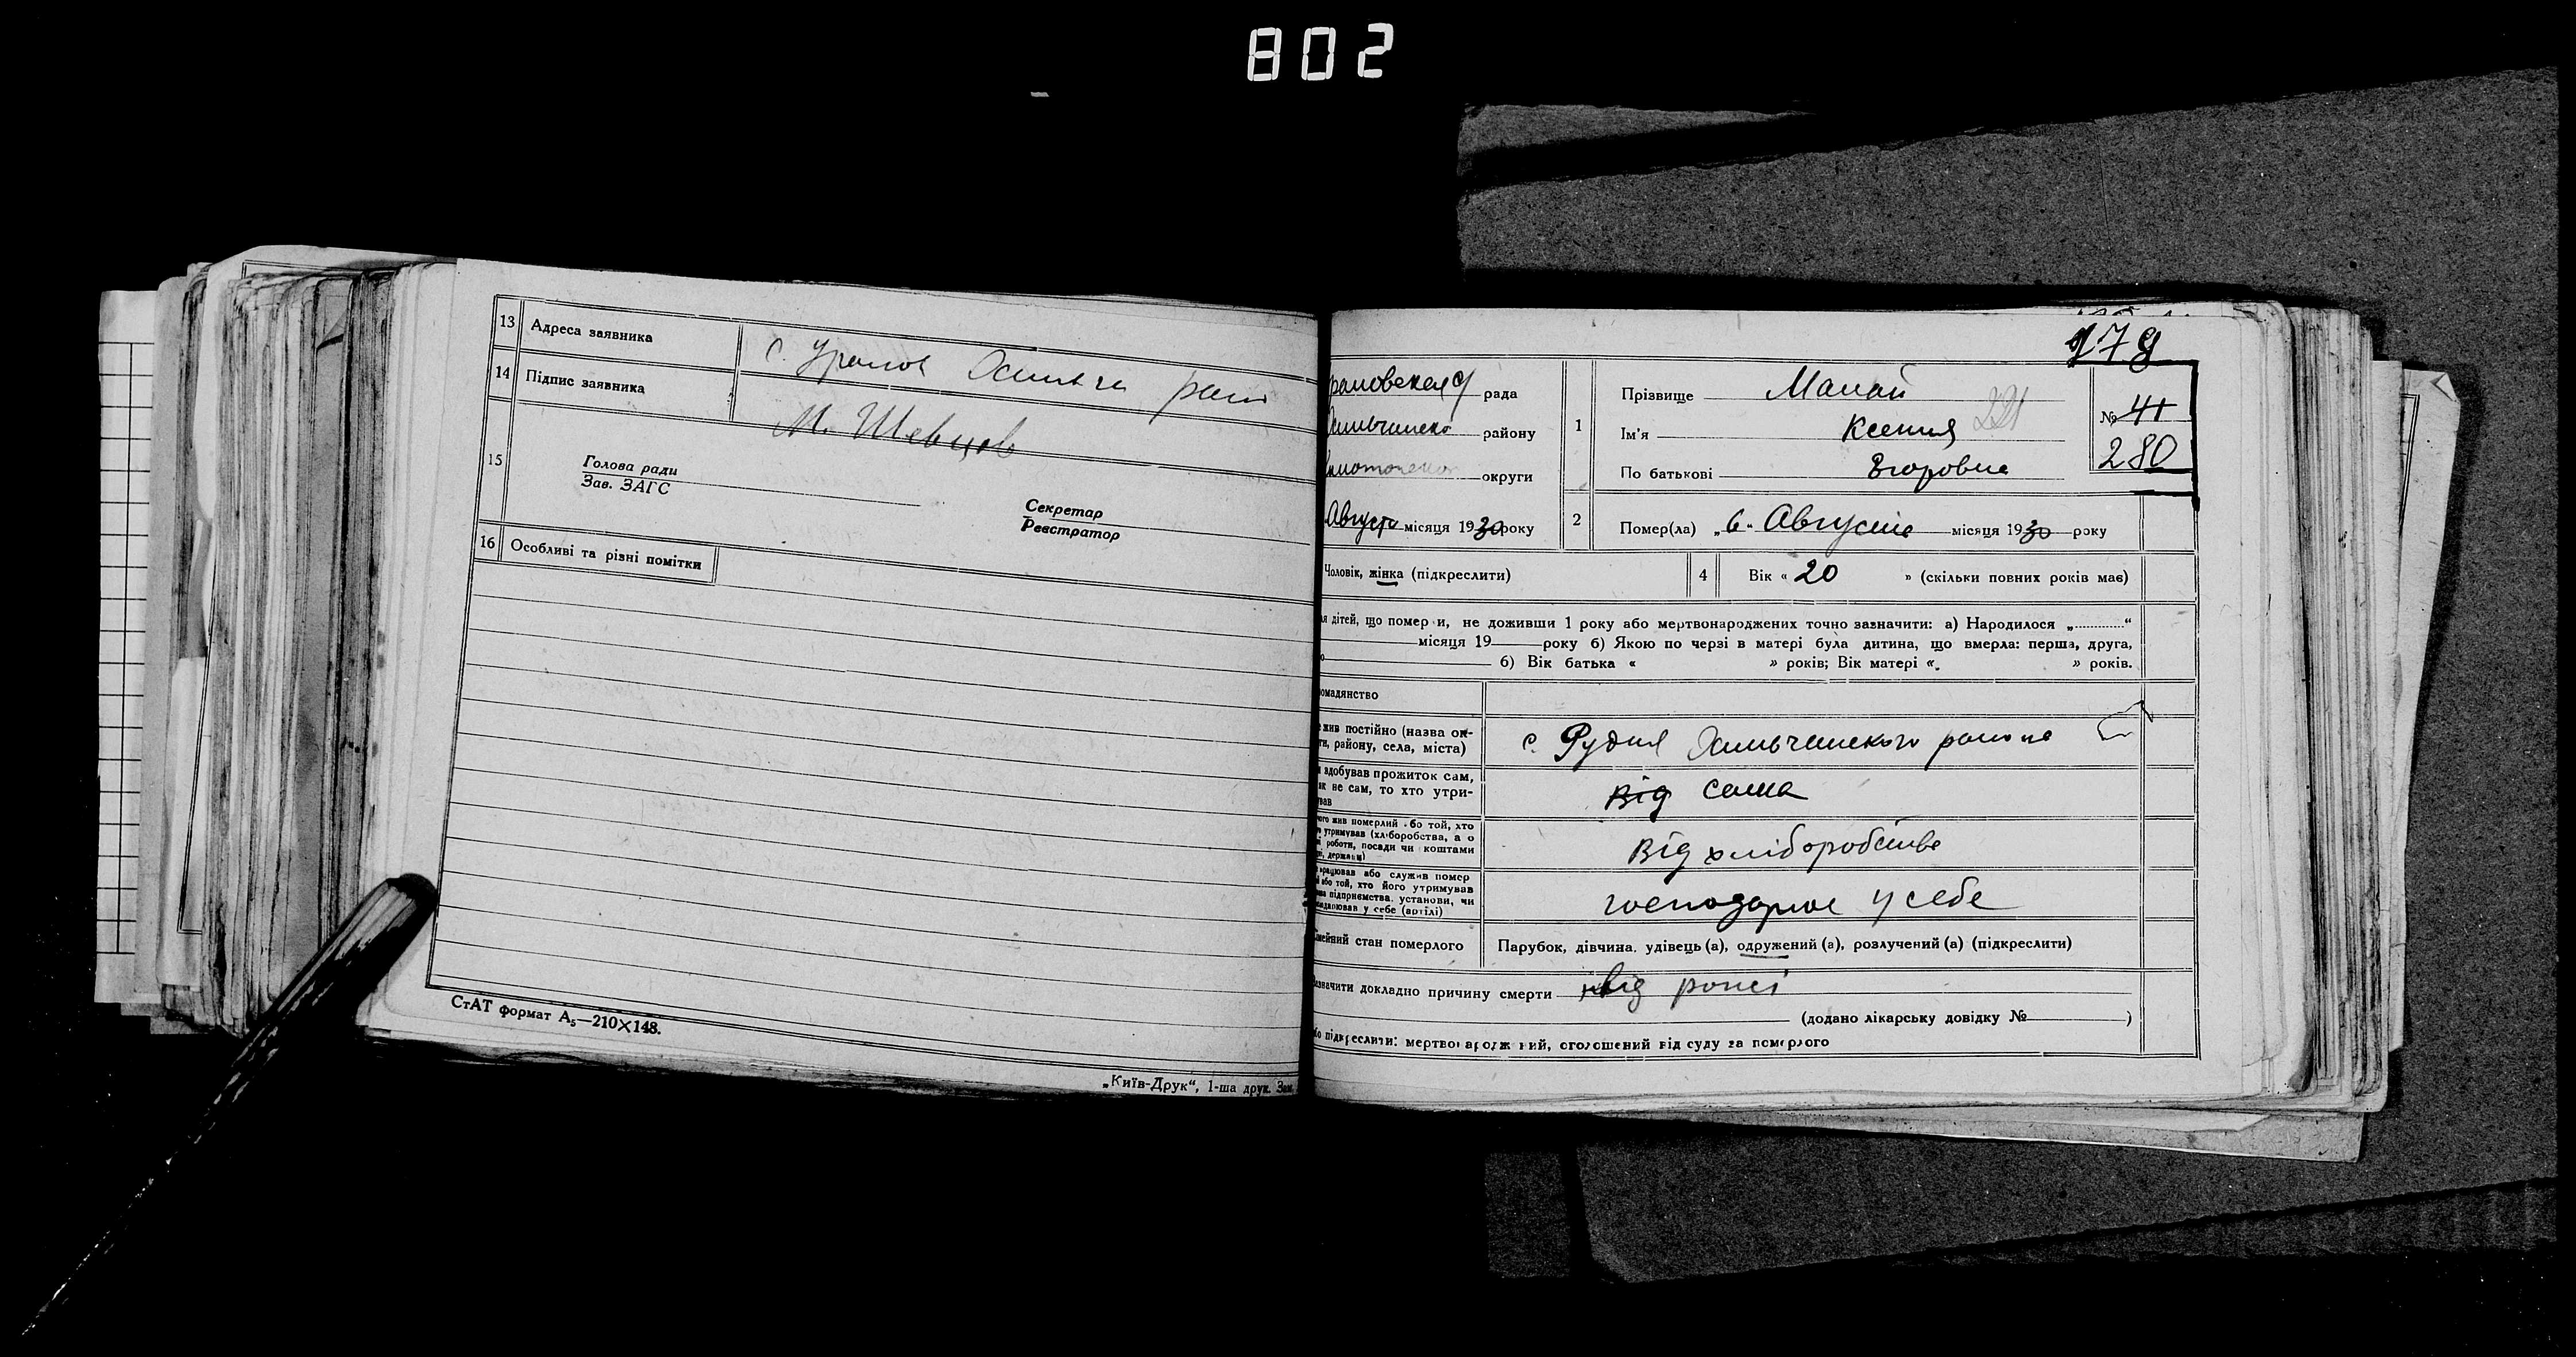 802
13 Адреса заявника с. Урамов Хильчи рай
14 Підпис заявника М. Шевцов
15
Голова ради
Зав. ЗАГС
Секретар
Реєстратор
16 Особливі та різні помітки
СтАТ формат А5—210×148.
„Київ-Друк“, 1-ша друк. Зам.
179
рада
району
округи
Августа місяця 1930 року
1 Прізвище
Ім'я Ксения 221
По батькові Егоровна
№ 41
280
2 Помер(ла) „6“ Августа місяця 1930 року
Чоловік, жінка (підкреслити)
4 Вік « 20 » (скільки повних років має)
дітей, що померли, не доживши 1 року або мертвонароджених точно зазначити: а) Народилося „............“
місяця 19 року б) Якою по черзі в матері була дитина, що вмерла: перша, друга,
б) Вік батька « » років; Вік матері « » років.
омадянство
жив постійно (назва ок-
ги, району, села, міста)
с. Рудня Хильчанского района
здобував прожиток сам,
як не сам, то хто утри-
вав
від сама
чого жив померлий або той, хто
утримував (хліборобства, а о
роботи, посади чи коштами
держави)
від хліборобства
працював або служив помер
або той, хто його утримував
підприємства, установи, чи
у себе (артілі)
господарює у себе
мейний стан померлого
Парубок, дівчина, удівець (а), одружений (а), розлучений (а) (підкреслити)
значити докладно причину смерти від
(додано лікарську довідку № )
підкреслити: мертвонароджений, оголошений від суду за померлого